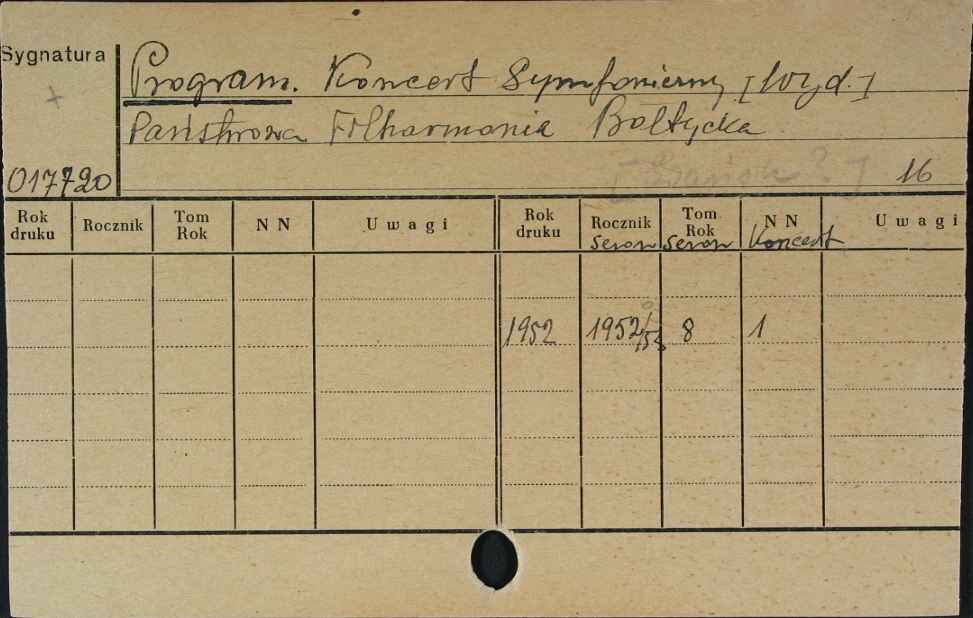 Sygnatura
Program. Koncert Symfoniczny [Wyd.]
+
Państwowa Filharmonia Bałtycka
[Gdańsk ?] 16
017720
Rok druku Rocznik Tom Rok N N Uwagi Rok druku Rocznik sezon Tom Rok sezon N N Koncert Uwagi
1952 1952/53 8 1